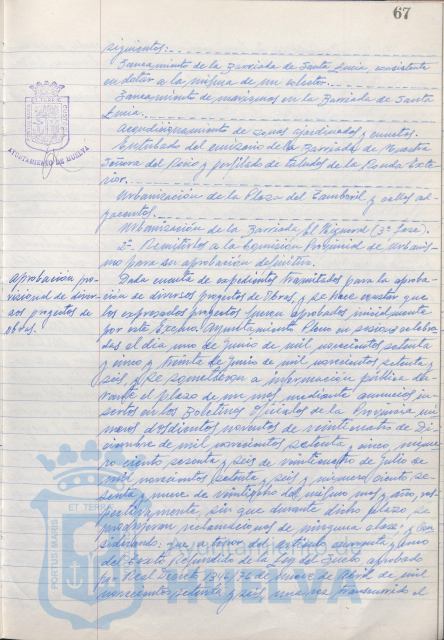 67
siguientes:
Saneamiento de la Barriada de Santa Lucia, consistente
en dotar a la misma de un colector.
Saneamiento de marismas en la Barriada de Santa
Lucia.
Acondicionamiento de zonas ajardinadas y
Entubado del emisario de la Barriada de Nuestra
Señora del Rocio y perfilado de taludes de la Ronda Exte-
rior.
Urbanización de la Plaza del Tamboril y calles ad-
yacentes.
Urbanización de la Barriada El Higueral (3ª fase).
2º- Remitirlos a la Comisión Provincial de Urbanis-
mo para su aprobación definitiva.
Aprobación pro-
visional de diver-
sos proyectos de
obras.
Dada cuenta de expedientes tramitados para la aproba-
ción de diversos proyectos de Obras, y se hace constar que
los expresados proyectos fueron aprobados inicialmente
por este Excmo. Ayuntamiento Pleno en sesiones celebra-
das el dia uno de Junio de mil novecientos setenta
y cinco y treinta de Junio de mil novecientos setenta y
seis y se sometieron a información pública du-
rante el plazo de un mes mediante anuncios in-
sertos en los Boletines Oficiales de la Provincia, nu-
meros doscientos noventa de veinticuatro de Di-
ciembre de mil novecientos setenta y cinco, nume-
ro ciento sesenta y seis de veinticuatro de Julio de
mil novecientos setenta y seis y numero ciento se-
senta y nueve de veintiocho del mismo mes y año, res-
pectivamente, sin que durante dicho plazo se
produjeran reclamaciones de ninguna clase; y Con-
siderando: que a tenor del articulo cuarenta y uno
del Texto Refundido de la Ley del Suelo aprobado
por Real Decreto 1346/76 de nueve de Abril de mil
novecientos setenta y seis una vez transcurrido el
AYUNTAMIENTO DE HUELVA
PORTUS MARIS ET TERRE
Ayuntamiento de
HUELVA